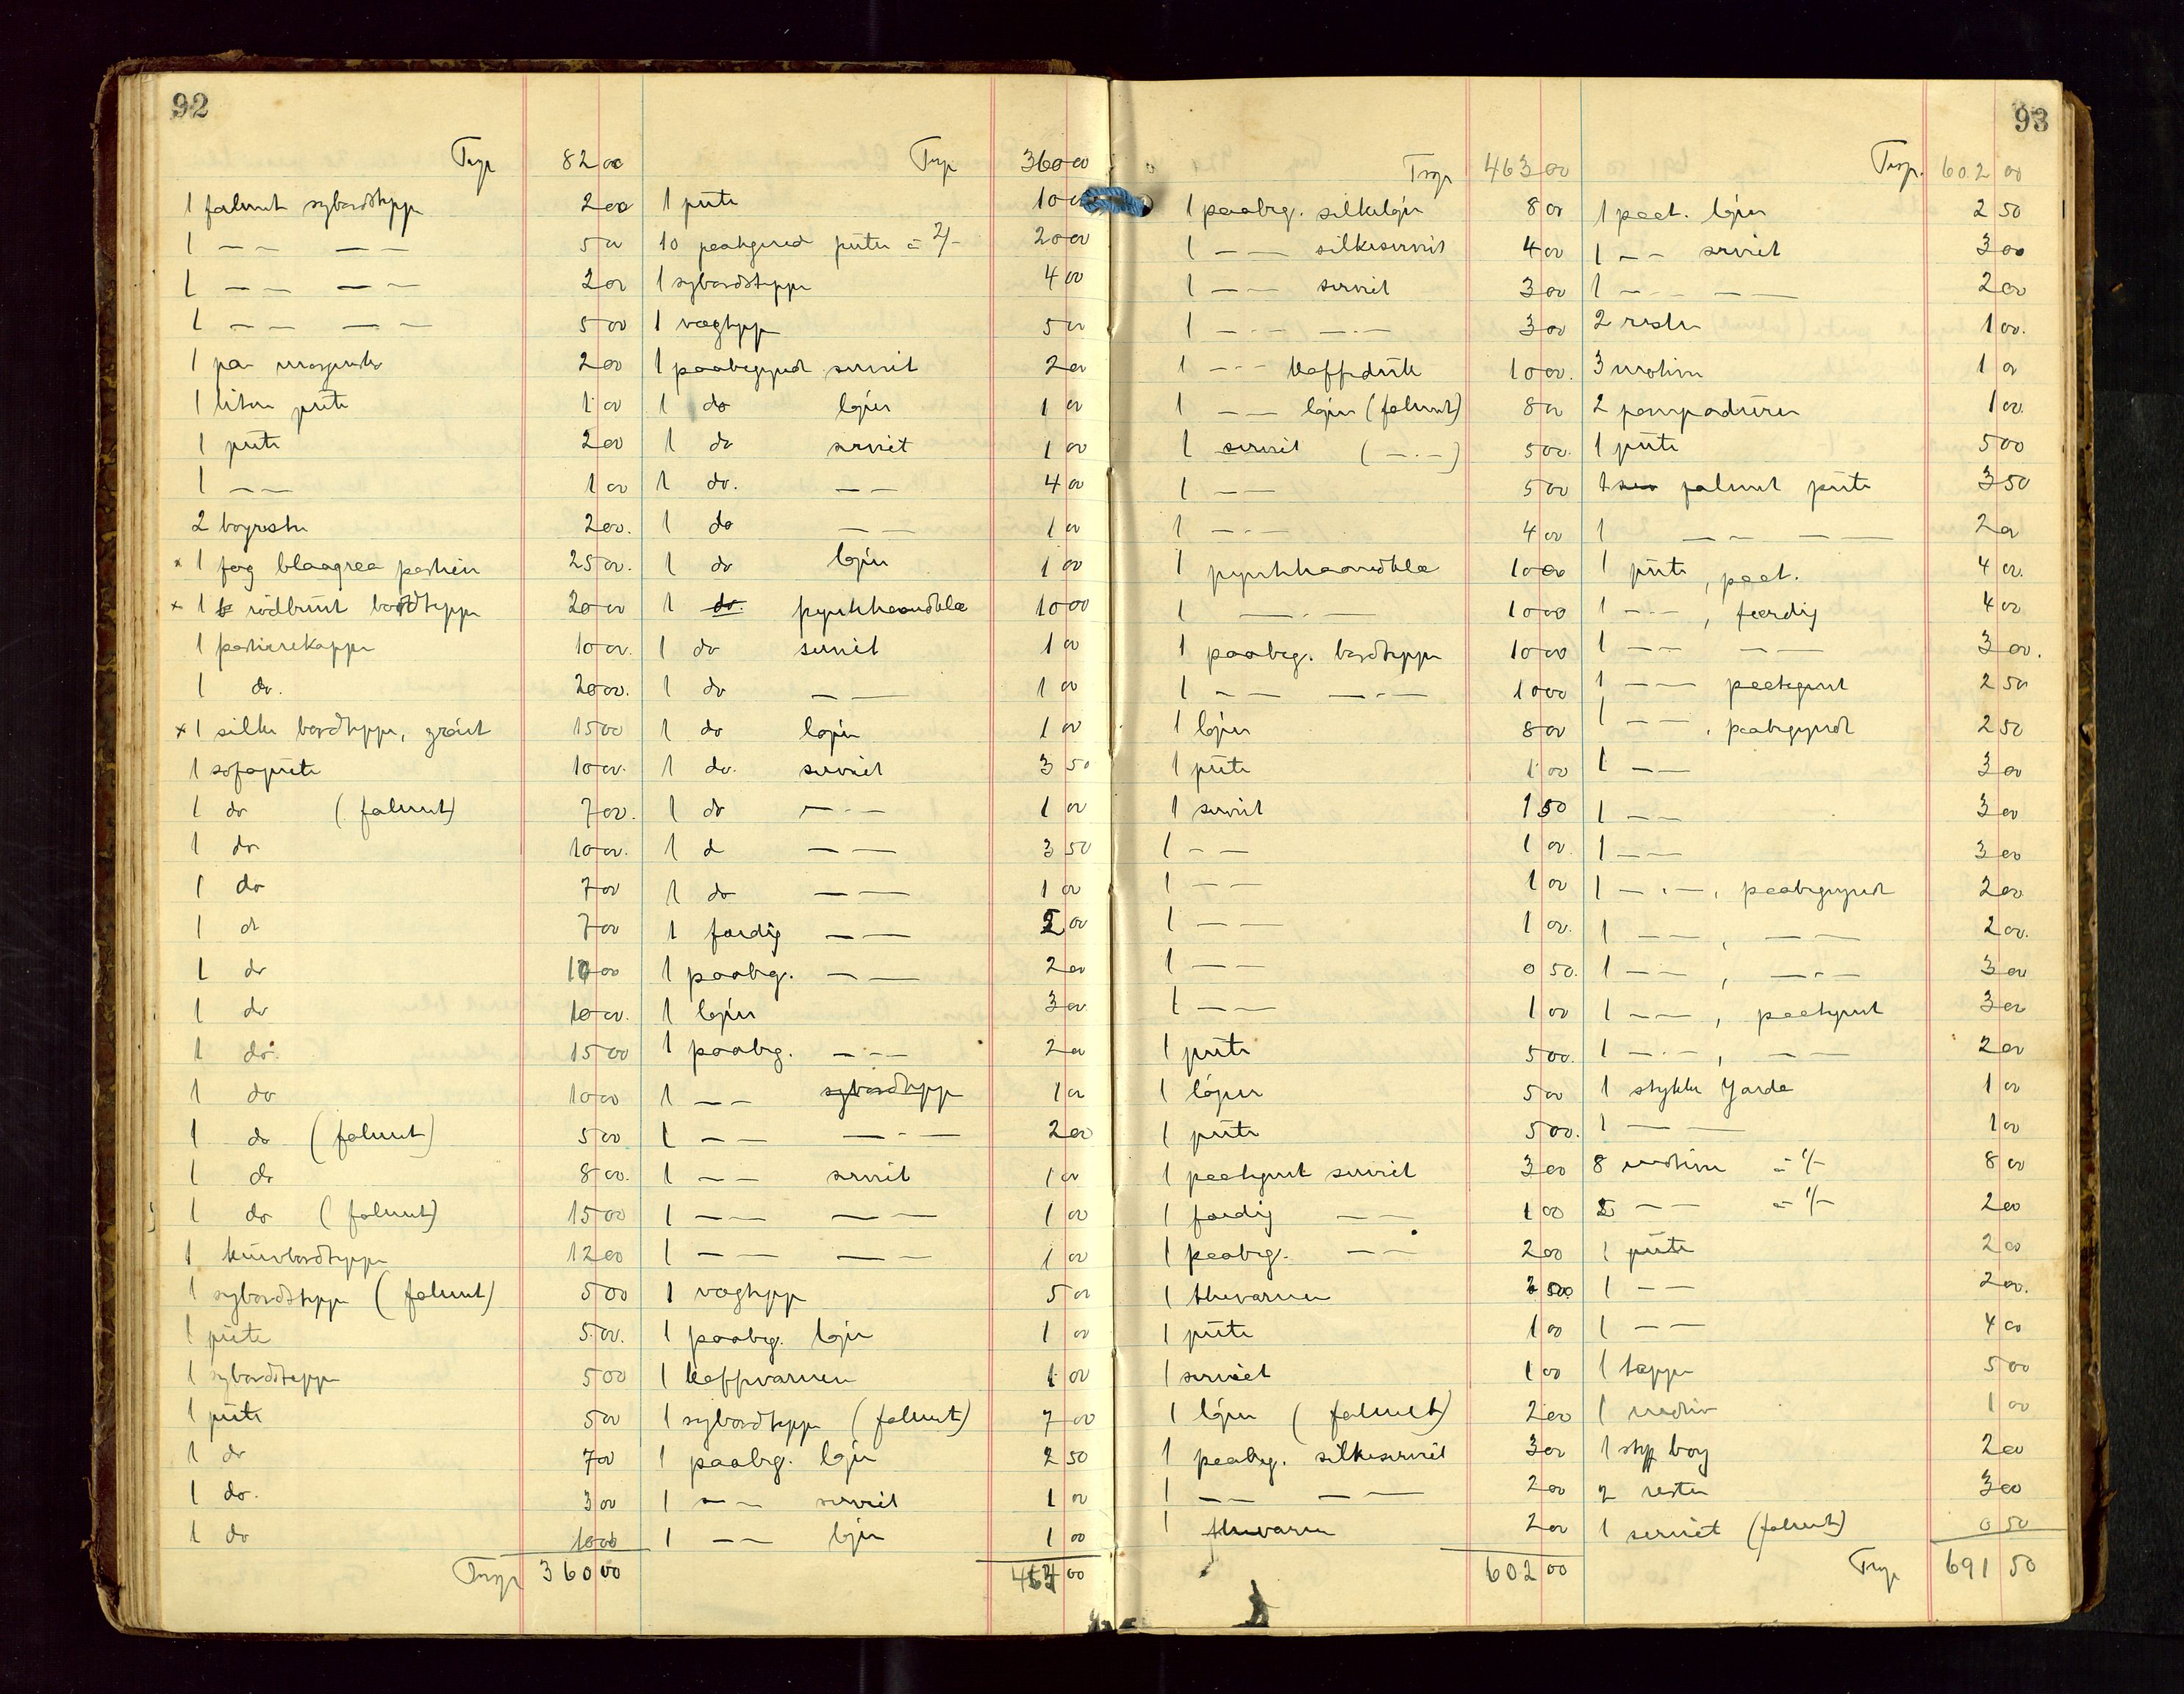 92
Trsp 82 00
1 falmet sybordsteppe 2 00
1 — — — — 5 00
1 — — — — 2 00
1 — — — — 5 00
1 par 2 00
1 liten pute 1 00
1 pute 2 00
1 — — 1 00
2 boyrester 2 00.
x 1 fag blaagrea portier 25 00.
x 1 rödbrunt bordteppe 20 00
1 portierekappe 10 00.
1 do. 20 00.
x 1 silke bordteppe, grönt 15 00
1 sofapute 10 00.
1 do (falmet) 7 00.
1 do 10 00.
1 do 7 00
1 do 7 00
1 do 10 00
1 do 10 00.
1 do. 15 00
1 do 10 00
1 do (falmet) 5 00
1 do 8 00.
1 do (falmet) 15 00
1 kurvbordteppe 12 00
1 sybordsteppe (falmet) 5 00
1 pute 5 00.
1 sybordsteppe 5 00
1 pute 5 00
1 do 7 00
1 do. 3 00
1 do 10 00
Trsp 360 00
Trsp 360 00
1 pute 10 00
10 paategned puter à 2/- 20 00
1 sybordsteppe 4 00
1 vægtepp 5 00
1 paabegyndt serviet 2 00
1 do löper 1 00
1 do serviet 1 00
1 do. — — 4 00
1 do — — 1 00
1 do löper 1 00
1 do. pyntehaandklæ 10 00
1 do serviet 1 00
1 do — — 1 00
1 do löper 1 00
1 do. serviet 3 50
1 do — - — 1 00
1 d — — 3 50
1 do — — 1 00
1 færdig — — 2 00
1 paabeg. — — 2 00
1 löper 3 00
1 paabeg. — - — 2 00
1 — — sybordtepp 1 00
1 — — — - — 2 00
1 — — serviet 1 00
1 — — — — 1 00
1 — — — — 1 00
1 vægtepp 5 00
1 paabeg. löper 1 00
1 kaffevarmer 1 00
1 sybordteppe (falmet) 7 00
1 paabeg. löper 2 50
1 — — serviet 1 00
1 — — löper 1 00
463 00
93
Trsp 463 00
1 paabeg. silkelöper 8 00
1 — — silkeserviet 4 00
1 — — serviet 3 00
1 — - — — - — 3 00
1 — - — kaffedute 10 00.
1 — — löper (falmet) 8 00
1 serviet ( — - — ) 5 00.
1 — — 5 00
1 — - — 4 00
1 pyntehaandklæ 10 00
1 — - — 10 00
1 paabeg. bordteppe 10 00
1 — — — - — 10 00
1 löper 8 00
1 pute 1 00
1 serviet 1 50
1 — — 1 00.
1 — — 1 00
1 — — 1 00.
1 — — 0 50.
1 — — 1 00
1 pute 5 00.
1 löper 5 00
1 pute 5 00.
1 paategnet serviet 3 00
1 færdig — — 1 00
1 paabeg. — — 2 00
1 thevarmer 2 50
1 pute 1 00
1 serviet 1 00
1 löper (falmet) 2 00
1 paabeg. silkeserviet 3 00
1 — — — — 2 00
1 thevarmer 2 00
602 00
Trsp. 602 00
1 paat. löper 2 50
1 — — serviet 3 00
1 — — — — 2 00
2 rester 1 00.
3 motiver 1 00
2 pompadurer 1 00.
1 pute 5 00
1 falmet pute 3 50
1 — — — — 2 00
1 pute, paat. 4 00.
1 — - —, færdig 4 00
1 — — — — 3 00.
1 — — paategnet 2 50
1 — — , paabegyndt 2 50
1 — — 3 00
1 — — 3 00
1 — — 3 00
1 — - — , paabegyndt 2 00
1 — — , — — 2 00.
1 — — , — - — 3 00
1 — — , paategnet 3 00
1 — - — , — — 2 00
1 stykke Jarde 1 00
1 — — 1 00
8 motiver à 1/- 8 00
2 — — à 1/- 2 00
1 pute 2 00
1 — — 2 00.
1 — — 4 00
1 tæppe 5 00
1 motiv 1 00
1 stk boy 2 00
2 rester 3 00
1 serviet (falmet) 0 50
Trsp 691 50